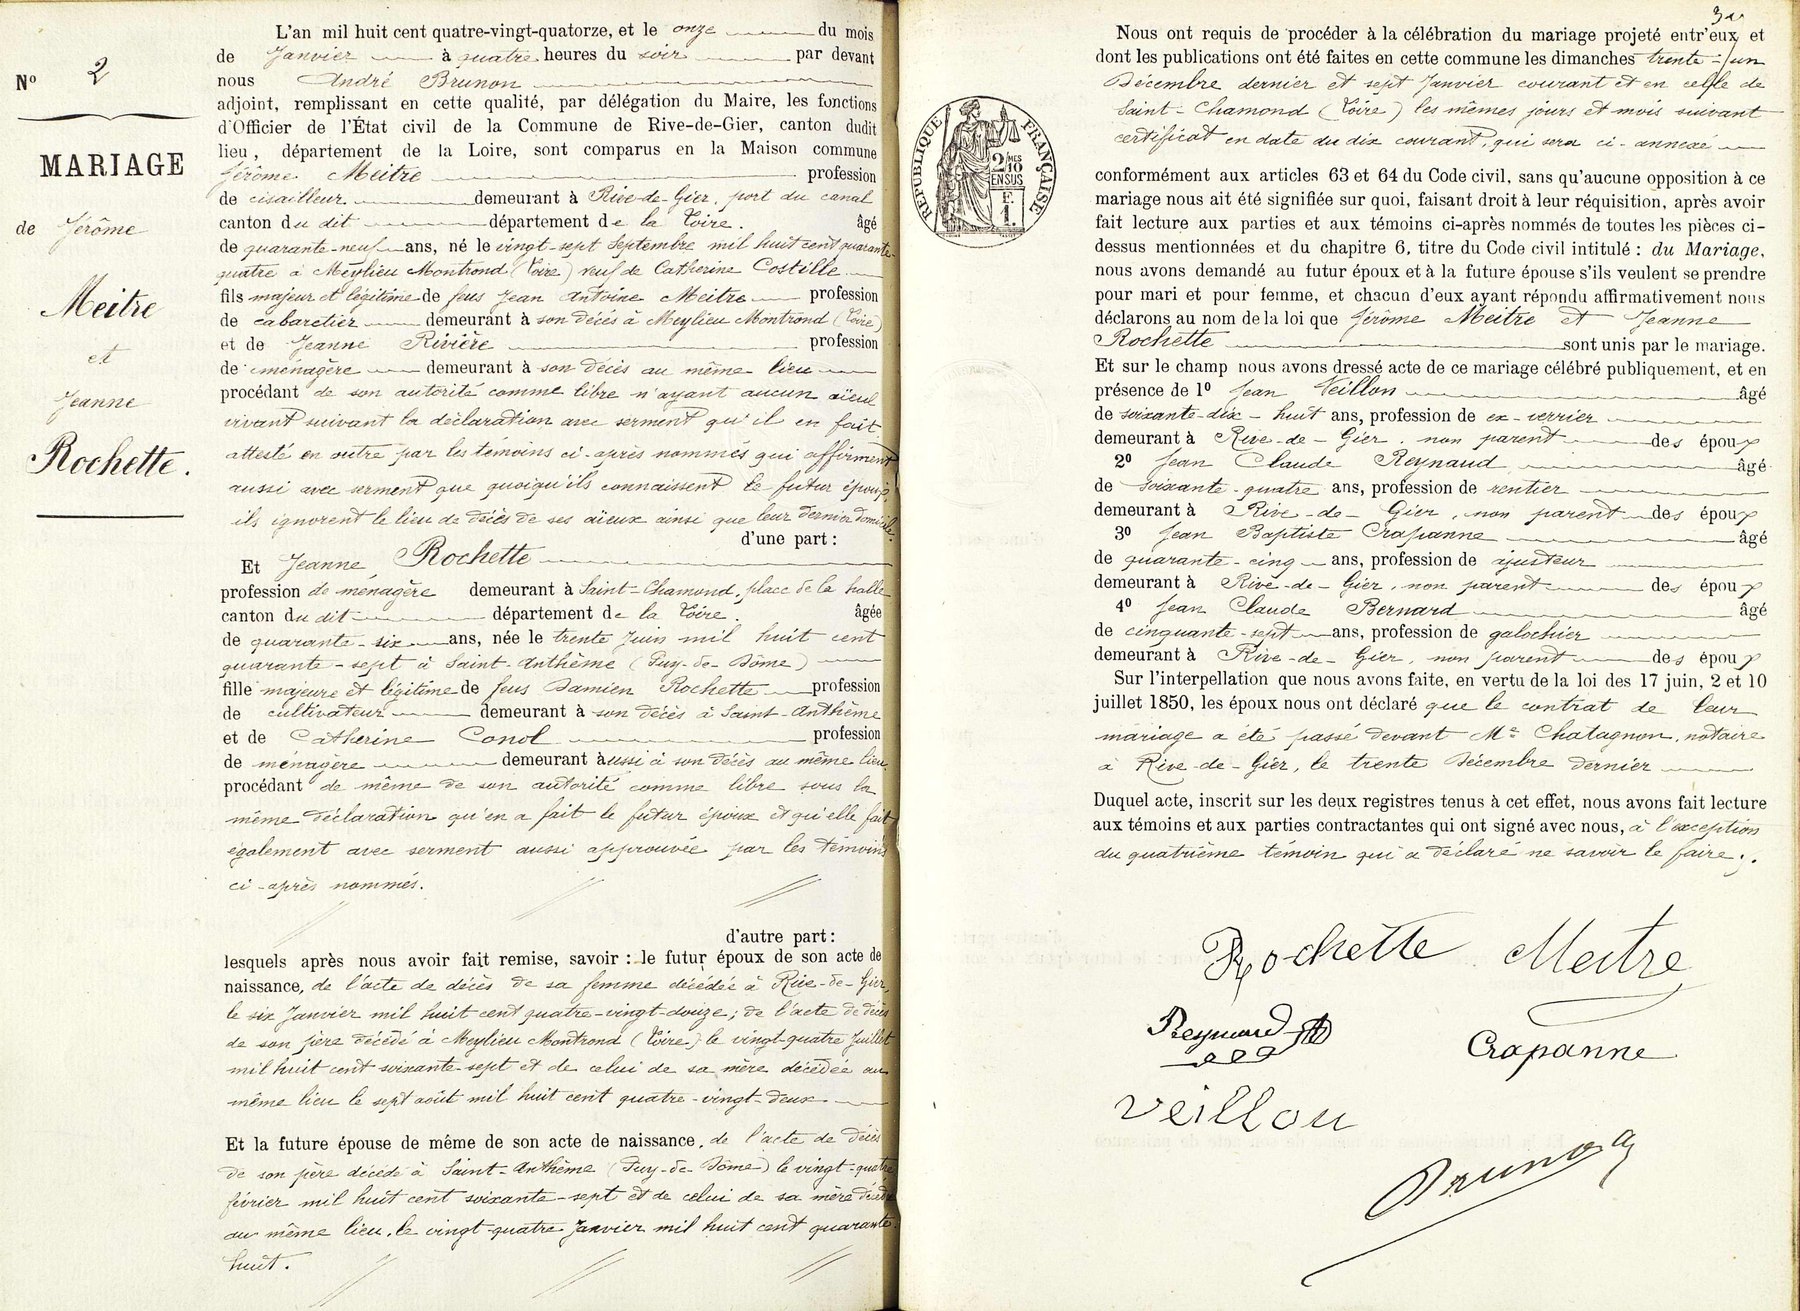 N° 2
MARIAGE
de Jérôme
Meitre
et
Jeanne
Rochette.
L'an mil huit cent quatre-vingt-quatorze, et le onze du mois
de Janvier à quatre heures du soir par devant
nous André Brunon
adjoint, remplissant en cette qualité, par délégation du Maire, les fonctions
d'Officier de l'État civil de la Commune de Rive-de-Gier, canton dudit
lieu, département de la Loire, sont comparus en la Maison commune
Jérôme Meitre profession
de cisailleur demeurant à Rive-de-Gier, port du canal
canton du dit département de la Loire. âgé
de quarante-neuf ans, né le vingt-sept Septembre mil huit cent quarante-
quatre à Meylieu Montrond (Loire) veuf de Catherine Costille
fils majeur et légitime de feus Jean Antoine Meitre profession
de cabaretier demeurant à son décès à Meylieu Montrond (Loire)
et de Jeanne Rivière profession
de ménagère demeurant à son décès au même lieu
procédant de son autorité comme libre n'ayant aucun aïeul
vivant suivant la déclaration avec serment qu'il en fait
attesté en outre par les témoins ci-après nommés qui affirment
aussi avec serment que quoiqu'ils connaissent le futur époux
ils ignorent le lieu de décès de ses aïeux ainsi que leur dernier domicile.
d'une part :
Et Jeanne Rochette
profession de ménagère demeurant à Saint-Chamond, place de la halle
canton du dit département de la Loire. âgée
de quarante-six ans, née le trente Juin mil huit cent
quarante-sept à Saint-Anthème (Puy-de-Dôme)
fille majeure et légitime de feus Damien Rochette profession
de cultivateur demeurant à son décès à Saint-Anthème
et de Catherine Conol profession
de ménagère demeurant aussi à son décès au même lieu
procédant de même de son autorité comme libre sous la
même déclaration qu'en a fait le futur époux et qu'elle fait
également avec serment aussi approuvée par les témoins
ci-après nommés.
d'autre part :
lesquels après nous avoir fait remise, savoir : le futur époux de son acte de
naissance, de l'acte de décès de sa femme décédée à Rive-de-Gier,
le six Janvier mil huit cent quatre-vingt-douze ; de l'acte de décès
de son père décédé à Meylieu Montrond (Loire) le vingt-quatre Juillet
mil huit cent soixante-sept et de celui de sa mère décédée au
même lieu le sept août mil huit cent quatre-vingt-deux
Et la future épouse de même de son acte de naissance, de l'acte de décès
de son père décédé à Saint-Anthème (Puy-de-Dôme) le vingt-quatre
février mil huit cent soixante-sept et de celui de sa mère décédée
au même lieu, le vingt-quatre Janvier mil huit cent quarante-
huit.
RÉPUBLIQUE FRANÇAISE
2/MES
10
EN SUS
F.
1.
Nous ont requis de procéder à la célébration du mariage projeté entr'eux et
dont les publications ont été faites en cette commune les dimanches trente-un
Décembre dernier et sept Janvier courant et en celle de
Saint-Chamond (Loire) les mêmes jours et mois suivant
certificat en date du dix courant, qui sera ci-annexé
conformément aux articles 63 et 64 du Code civil, sans qu'aucune opposition à ce
mariage nous ait été signifiée sur quoi, faisant droit à leur réquisition, après avoir
fait lecture aux parties et aux témoins ci-après nommés de toutes les pièces ci-
dessus mentionnées et du chapitre 6, titre du Code civil intitulé : du Mariage,
nous avons demandé au futur époux et à la future épouse s'ils veulent se prendre
pour mari et pour femme, et chacun d'eux ayant répondu affirmativement nous
déclarons au nom de la loi que Jérôme Meitre et Jeanne
Rochette sont unis par le mariage.
Et sur le champ nous avons dressé acte de ce mariage célébré publiquement, et en
présence de 1° Jean Veillon âgé
de soixante-dix-huit ans, profession de ex-verrier
demeurant à Rive-de-Gier, non parent des époux
2° Jean Claude Reynaud âgé
de soixante-quatre ans, profession de rentier
demeurant à Rive-de-Gier, non parent des époux
3° Jean Baptiste Crapanne âgé
de quarante-cinq ans, profession de ajusteur
demeurant à Rive-de-Gier, non parent des époux
4° Jean Claude Bernard âgé
de cinquante-sept ans, profession de galochier
demeurant à Rive-de-Gier, non parent des époux
Sur l'interpellation que nous avons faite, en vertu de la loi des 17 juin, 2 et 10
juillet 1850, les époux nous ont déclaré que le contrat de leur
mariage a été passé devant Me Chatagnon, notaire
à Rive-de-Gier, le trente Décembre dernier
Duquel acte, inscrit sur les deux registres tenus à cet effet, nous avons fait lecture
aux témoins et aux parties contractantes qui ont signé avec nous, à l'exception
du quatrième témoin qui a déclaré ne savoir le faire.
Rochette Meitre
Reynaud
Crapanne
Veillon
Brunon